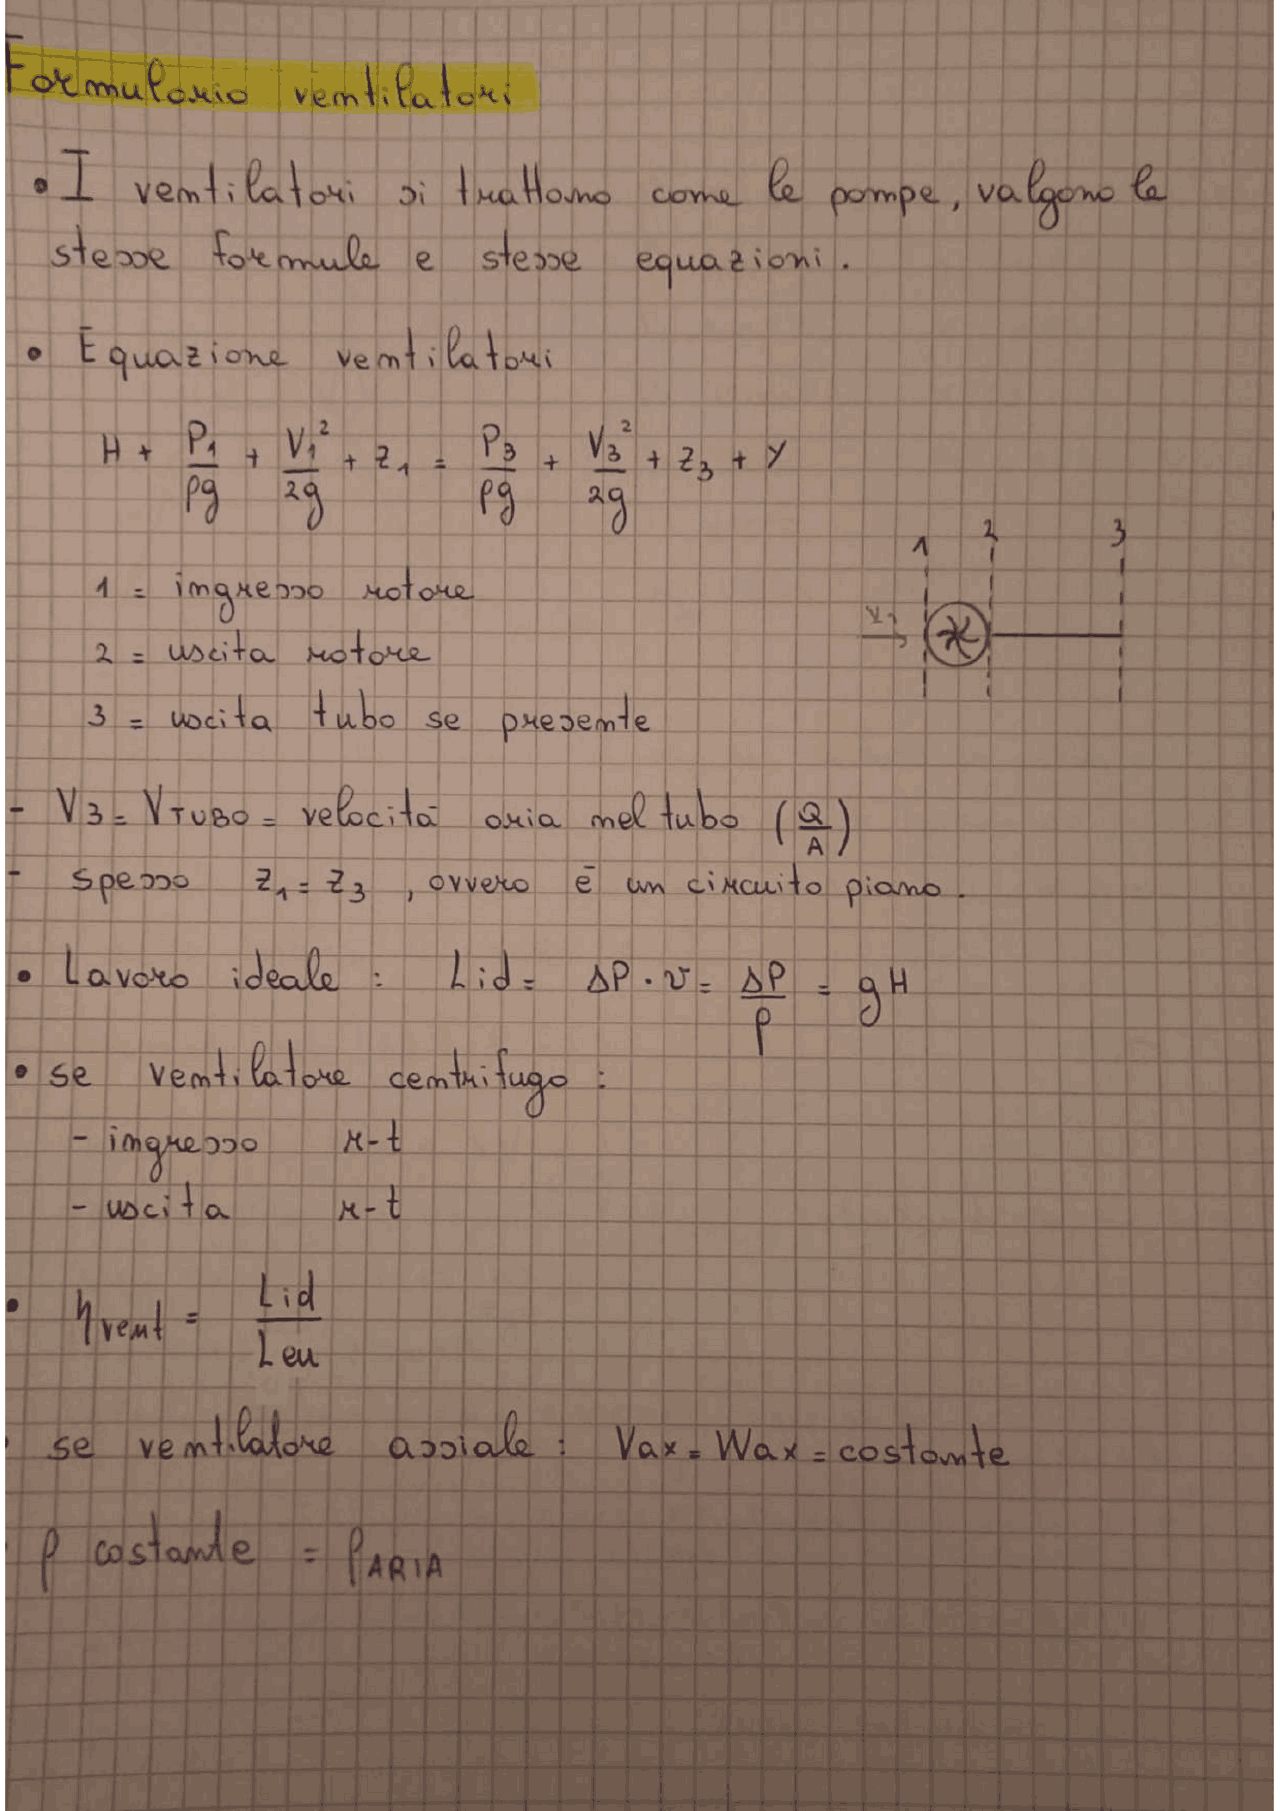 Formulario ventilatori
• I ventilatori si trattano come le pompe, valgono le
stesse formule e stesse equazioni.
• Equazione ventilatori
H + P1/ρg + V1²/2g + z1 = P3/ρg + V3²/2g + z3 + Y
1 2 3
1 = ingresso rotore
2 = uscita rotore
3 = uscita tubo se presente
- V3 = VTUBO = velocità aria nel tubo (Q/A)
- spesso z1 = z3, ovvero è un circuito piano.
• Lavoro ideale : Lid = ΔP · v = ΔP/ρ = gH
• se ventilatore centrifugo :
- ingresso r-t
- uscita r-t
• ηvent = Lid/Leu
se ventilatore assiale : Vax = Wax = costante
ρ costante = ρARIA